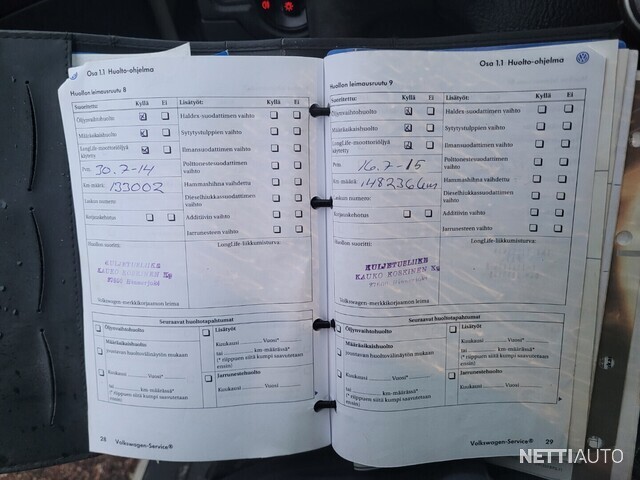 Osa 1.1 Huolto-ohjelma
Huollon leimausruutu 8
Suoritettu: Kyllä Ei Lisätyöt: Kyllä Ei
Öljynvaihtohuolto Haldex-suodattimen vaihto
Määräaikaishuolto Sytytystulppien vaihto
LongLife-moottoriöljyä käytetty Ilmansuodattimen vaihto
Pvm: 30.7-14 Polttonestesuodattimen vaihto
Km-määrä: 133002 Hammashihna vaihdettu
Laskun numero: Dieselhiukkassuodattimen vaihto
Korjauskehotus Additiivin vaihto
Jarrunesteen vaihto
Huollon suoritti: LongLife-liikkumisturva:
KULJETUSLIIKE
KAUKO KOSKINEN Ky
Volkswagen-merkkikorjaamon leima
Seuraavat huoltotapahtumat
Öljynvaihtohuolto Lisätyöt
Määräaikaishuolto Kuukausi Vuosi*
joustavan huoltovälinäytön mukaan tai km-määrässä*
(* riippuen siitä kumpi saavutetaan ensin)
Kuukausi Vuosi* Jarrunestehuolto
tai km-määrässä* Kuukausi Vuosi
(* riippuen siitä kumpi saavutetaan ensin)
28 Volkswagen-Service®
Osa 1.1 Huolto-ohjelma
Huollon leimausruutu 9
Suoritettu: Kyllä Ei Lisätyöt: Kyllä Ei
Öljynvaihtohuolto Haldex-suodattimen vaihto
Määräaikaishuolto Sytytystulppien vaihto
LongLife-moottoriöljyä käytetty Ilmansuodattimen vaihto
Pvm: 16.7-15 Polttonestesuodattimen vaihto
Km-määrä: 148236km Hammashihna vaihdettu
Laskun numero: Dieselhiukkassuodattimen vaihto
Korjauskehotus Additiivin vaihto
Jarrunesteen vaihto
Huollon suoritti: LongLife-liikkumisturva:
KULJETUSLIIKE
KAUKO KOSKINEN Ky
Volkswagen-merkkikorjaamon leima
Seuraavat huoltotapahtumat
Öljynvaihtohuolto Lisätyöt
Määräaikaishuolto Kuukausi Vuosi*
joustavan huoltovälinäytön mukaan tai km-määrässä*
(* riippuen siitä kumpi saavutetaan ensin)
Kuukausi Vuosi* Jarrunestehuolto
tai km-määrässä* Kuukausi Vuosi
(* riippuen siitä kumpi saavutetaan ensin)
Volkswagen-Service® 29
NETTIAUTO